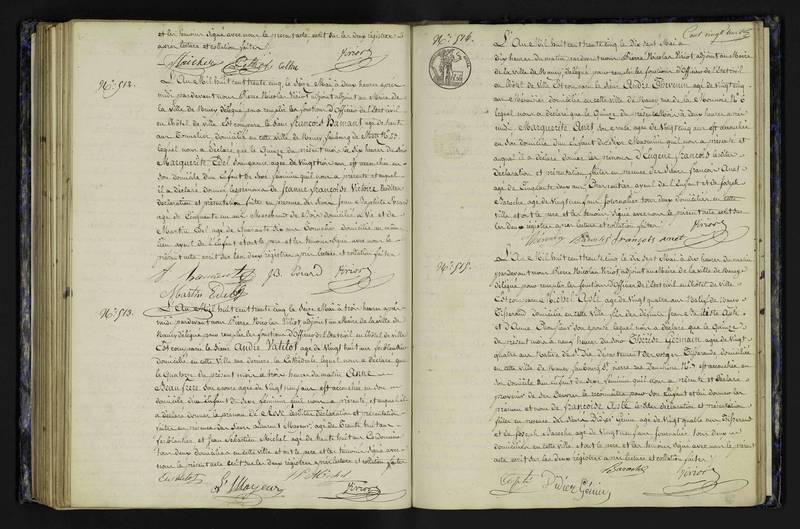 et les témoins signé avec nous le présent acte écrit sur les deux registres
après lecture et collation faites
Viriot
N.° 512.
L'An Mil huit cent trente cinq le Seize Mai à deux heures après
midi pardevant nous Pierre Nicolas Viriot adjoint au Maire de
la Ville de Nancy délégué pour remplir les fonctions d'Officier de l'état civil
en l'hôtel de ville Est comparu le Sieur François Hamant âgé de trente
ans Tonnelier domicilié en cette ville de Nancy faubourg de Metz
lequel nous a déclaré que le Quinze du présent mois à dix heures du soir
Marguerite Edel Son épouse âgée de vingt ans est accouchée en
son domicile d'un Enfant du Sexe féminin qu'il nous a présenté et auquel
il a déclaré donner les prénoms de Jeanne Françoise Victoire lesdites
déclaration et présentation faites en présence des Sieurs Jean Baptiste Evrard
âgé de Cinquante un ans Marchand de bois domicilié à Vic et de
Martin Edel âgé de Quarante dix ans Tonnelier domicilié au même
lieu ayeul de l'Enfant et ont le père et les témoins signé avec nous le
présent acte écrit sur les deux registres après lecture et collation faites
F. Hamant J.B. Evrard Viriot
Martin Edel
N.° 513.
L'An Mil huit cent trente cinq le Seize Mai à trois heures après
midi pardevant nous Pierre Nicolas Viriot adjoint au Maire de la ville de
Nancy délégué pour remplir les fonctions d'Officier de l'Etat civil en l'hôtel de ville
Est comparu le Sieur André Vatelot âgé de vingt huit ans ferblantier
domicilié en cette ville rue derrière la Cathédrale lequel nous a déclaré que
le Quatorze du présent mois à trois heures du matin Anne
Son épouse âgée de vingt neuf ans est accouchée en son
domicile d'un Enfant du Sexe féminin qu'il nous a présenté et auquel il
a déclaré donner le prénom de lesdites déclaration et présentation
faites en présence des Sieurs Laurent Mayeur âgé de Trente huit ans
ferblantier et Jean Sébastien Michel âgé de trente huit ans Cordonnier
tous deux domiciliés en cette ville et ont le père et les témoins signé avec
nous le présent acte écrit sur les deux registres après lecture et collation faites
Vatelot L. Mayeur Michel Viriot
Cent vingt
N.° 514.
L'An Mil huit cent trente cinq le Dix Sept Mai à
Dix heures du matin pardevant nous Pierre Nicolas Viriot adjoint au Maire
de la ville de Nancy délégué pour remplir les fonctions d'Officier de l'état civil
en l'hôtel de ville Est comparu le Sieur André Thévenin âgé de vingt cinq
ans Menuisier domicilié en cette ville de Nancy rue de la Monnaie N.° 6
lequel nous a déclaré que le Quinze du présent mois à deux heures après
midi Marguerite Anel Son épouse âgée de vingt cinq ans est accouchée
en son domicile d'un Enfant du Sexe Masculin qu'il nous a présenté et
auquel il a déclaré donner les prénoms d'Eugène François lesdites
déclaration et présentation faites en présence des Sieurs François Anel
âgé de Cinquante deux ans Charpentier ayeul de l'Enfant et de Joseph
Baroche âgé de vingt neuf ans Journalier tous deux domiciliés en cette
ville et ont le père et les témoins signé avec nous le présent acte écrit sur
les deux registres après lecture et collation faites Viriot
Thévenin Baroche françois anel
N.° 515.
L'An Mil huit cent trente cinq le Dix Sept Mai à dix heures du matin
pardevant nous Pierre Nicolas Viriot adjoint au Maire de la ville de Nancy
délégué pour remplir les fonctions d'Officier de l'état civil en l'hôtel de ville
Est comparu Michel Aslé âgé de vingt quatre ans
Tisserand domicilié en cette ville fils des défunts Jean Aslé
et d'Anne son épouse lequel nous a déclaré que le Quinze
du présent mois à neuf heures du Soir Thérèse Germain âgée de vingt
quatre ans Native de St Dié département des Vosges Tisserande domiciliée
en cette ville de Nancy faubourg St pierre est accouchée en
son domicile d'un Enfant du Sexe féminin qu'il nous a présenté et déclaré
provenir de ses œuvres le reconnaître pour son Enfant et lui donner les
prénoms et nom de Françoise Aslé lesdites déclaration et présentation
faites en présence des Sieurs Didier Génin âgé de vingt quatre ans Tisserand
et de Joseph Baroche âgé de vingt neuf ans Journalier tous deux
domiciliés en cette ville et ont le père et les témoins signé avec nous le présent
acte écrit sur les deux registres après lecture et collation faites
Baroche Viriot
Didier Génin